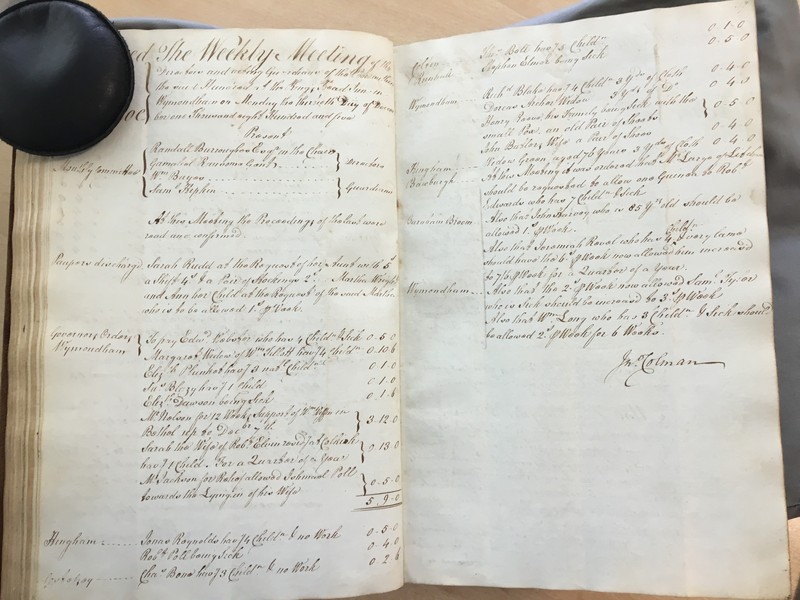 The Weekly Meeting of the
Directors and acting Guardians of the Poor
the said Hundred at the King's Head Inn in
Wymondham on Monday the thirtieth Day of
one Thousand eight Hundred and five
Present
Monthly Committee
Randall Burroughes Esqr in the Chair
Directors
Wm
Saml
Guardians
At this Meeting the Proceedings of the last were
read and confirmed
Paupers discharged
Sarah Rudd at the Request of her Aunt with 5s
a Shift 4s & Pair of Stockings 2s Martha Wright
and Ann her Child at the Request of the said Martha
who is to be allowed 1s. ⅌ Week.
Governors Orders
Wymondham
To pay Edwd Webster who has 4 Childn & Sick 0-5-0
Margaret Widow of Wm Tillett havg 4 Childn 0-10-6
Elizth havg 3 Childn 0-1-0
havg 1 Child 0-1-0
Elizth Dawson being Sick 0-1-6
Mr Nelson for 12 Weeks Support of Wm in
Bethel up to Decbr 3-12-0
Sarah the Wife of Robt Elvin
havg 1 Child. For a Quarter of a Year 0-13-0
Mr Jackson for Relief allowed Poll
towards the Lying in of his Wife 0-5-0
5-9-0
Hingham Jonas Reynolds havg 4 Childn & no Work 0-5-0
Robt Poll being Sick 0-4-0
Chas havg 3 Childn & no Work 0-2-6
Thos Bell havg 3 Childn 0-1-0
Kimberly Stephen Elmer being Sick 0-5-0
Wymondham Richd Blake havg 4 Childn 3 Yds of Cloth 0-4-0
Dorcas Archer Widow 3 Yds of Do 0-4-0
Henry his Family being Sick with the
small Pox. an old Pair of Sheets 0-5-0
John Butler, Wife a Pair of Shoes 0-4-0
Hingham Widow Green, aged 76 Years 3 Yds of Cloth 0-4-0
Bawburgh At this Meeting it was ordered that Mr Large of
should be requested to allow one Guinea to Robt
Edwards who has 7 Childn & Sick
Also that John Harvey who is 85 Yrs old should be
allowed 1s. ⅌ Week.
Barnham Broom Also that Jeremiah who has 4 Childn & very lame
should have the 6s ⅌ Week now allowed him increased
to 7/6 ⅌ Week for a Quarter of a Year
Wymondham Also that the 2s ⅌ Week now allowed Saml Tyler
who is Sick should be increased to 3s ⅌ Week
Also that Wm Long who has 3 Childn & Sick should
be allowed 2s ⅌ Week for 6 Weeks.
Jno Colman